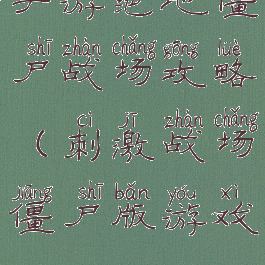 手游绝地僵
shī zhàn chǎng gōng lüè
尸战场攻略
cì jī zhàn chǎng
（刺激战场
jiāng shī bǎn yóu xì
僵尸版游戏